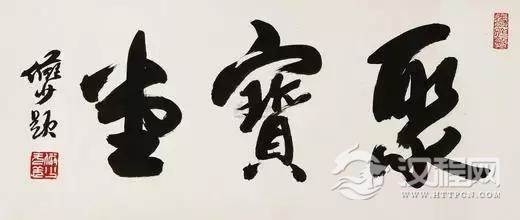 聚寶堂
儼少題
汉程网
WWW.HTTPCN.COM